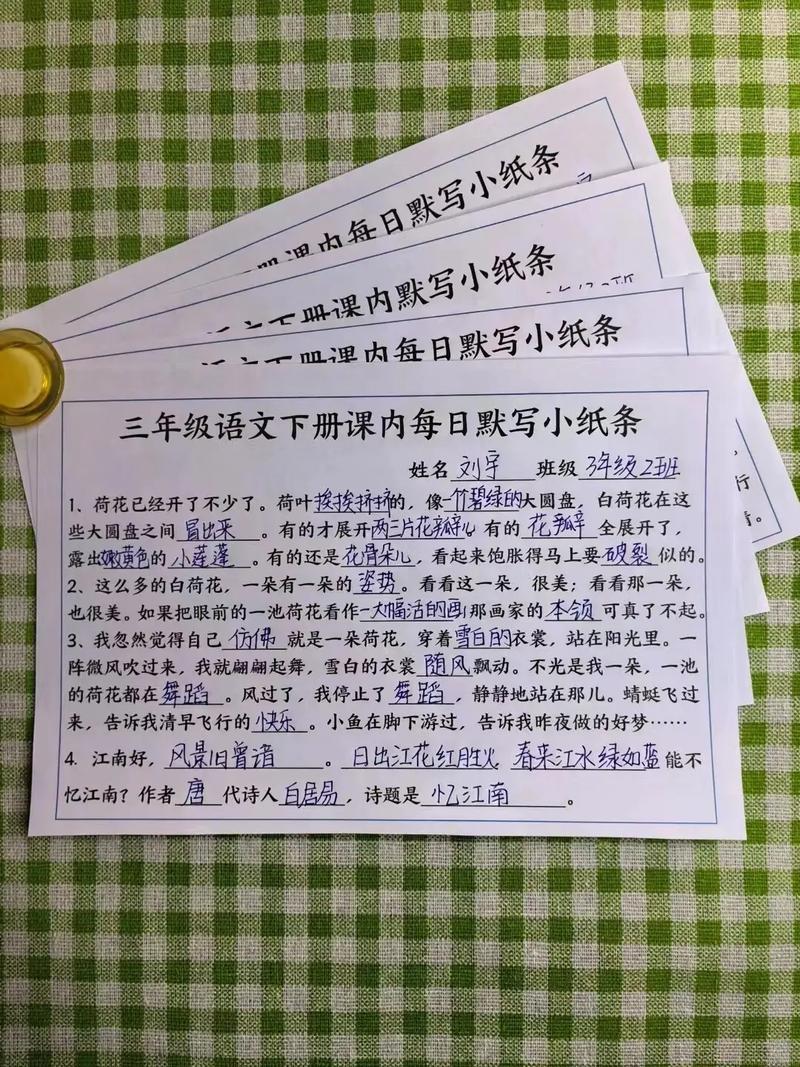 册课内每日默写小纸条
语文下册课内默写小纸条
语文下册课内每日默写小纸条
行
情。
三年级语文下册课内每日默写小纸条
姓名 刘宇 班级 3年级2班
1、荷花已经开了不少了。荷叶挨挨挤挤的，像一个碧绿的大圆盘，白荷花在这
些大圆盘之间 冒出来 。有的才展开两三片花瓣儿 有的 花瓣 全展开了，
露出嫩黄色的 小莲蓬 。有的还是花骨朵儿，看起来饱胀得马上要破裂似的。
2、这么多的白荷花，一朵有一朵的姿势。看看这一朵，很美；看看那一朵，
也很美。如果把眼前的一池荷花看作一大幅活的画那画家的本领可真了不起。
3、我忽然觉得自己 仿佛 就是一朵荷花，穿着雪白的衣裳，站在阳光里。一
阵微风吹过来，我就翩翩起舞，雪白的衣裳随风飘动。不光是我一朵，一池
的荷花都在舞蹈 。风过了，我停止了舞蹈 ，静静地站在那儿。蜻蜓飞过
来，告诉我清早飞行的快乐。小鱼在脚下游过，告诉我昨夜做的好梦……
4. 江南好，风景旧曾谙 。日出江花红胜火 春来江水绿如蓝 能不
忆江南？作者 唐 代诗人 白居易，诗题是 忆江南 。